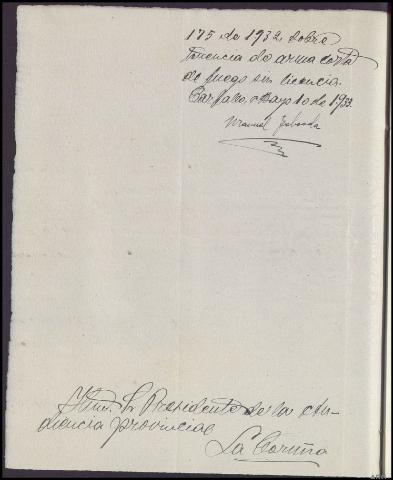 175 de 1932 sobre
tenencia de arma corta
de fuego sin licencia.
Carballo, Mayo 10 de 1933.
Manuel
Ilmo. Sr. Presidente de la Au-
diencia provincial
La Coruña